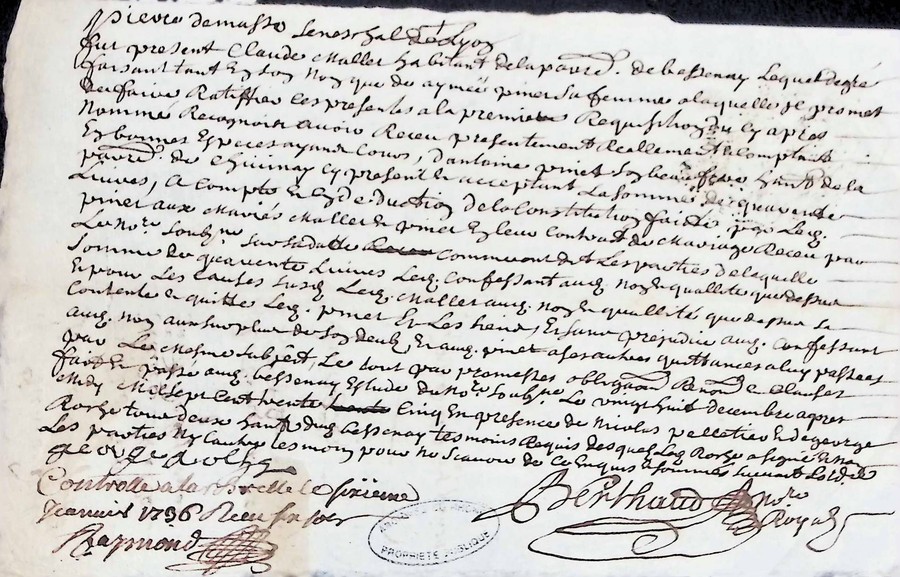 pierre demasso seneschal de Lyon
fut present Claude Mallet habitant de la parre. de bessenay Lequel de gré
faisant tant En son Nom que de aymée pinet sa femme a laquelle jl promet
de faire Ratiffier ces presentes a la premiere Requisition du cy apres
Nommé Recognoit avoir Receu presentement Reellement & Comptant
En bonnes Especes ayant Cours, d'antoine pinet son beaufrere hant. de la
parre. de cy present & acceptant La somme de quarente
Livres, A compte En de deduction de la Constitution faitte par Led.
pinet aux Mariés Mallet & pinet En leur Contrat de Mariage Receu par
Le Nore. Soubne sur sa datte comme ont dit Les parties de laquelle
Somme de quarente Livres Led. Confessant aud. Nom & quallité que dessus
Et pour Les Causes susd. Led. Mallet aud. nom & quallité que dessus Se
Contente & quitte Led. pinet Et Les siens, Et sans prejudice aud. Confessant
aud. nom au surplus de son deub, Et aud. pinet a ses autres quittances a luy passées
par Le Mesme Subject, Le tout par promesses obligaon Renons & clauses
fait Et passé aud. bessenay Estude du Nore. Soubne. Le vingt huit decembre apres
Midy Mil sept cent trente Cinq En presence de Nicolas pelletier & de george
Rorze tous deux hants dud. bessenay tesmoins Requis desquels Led. Rorze a signé Et Non
Les parties Ny L'autre tesmoin pour ne scavoir de ce Enquis & sommés suivant L'ordce
george Rorze
Controllé a la le sixieme
Janvier 1736 Receu six sols
Raymond
Berthaud nore
Royal
PROPRIETE PUBLIQUE